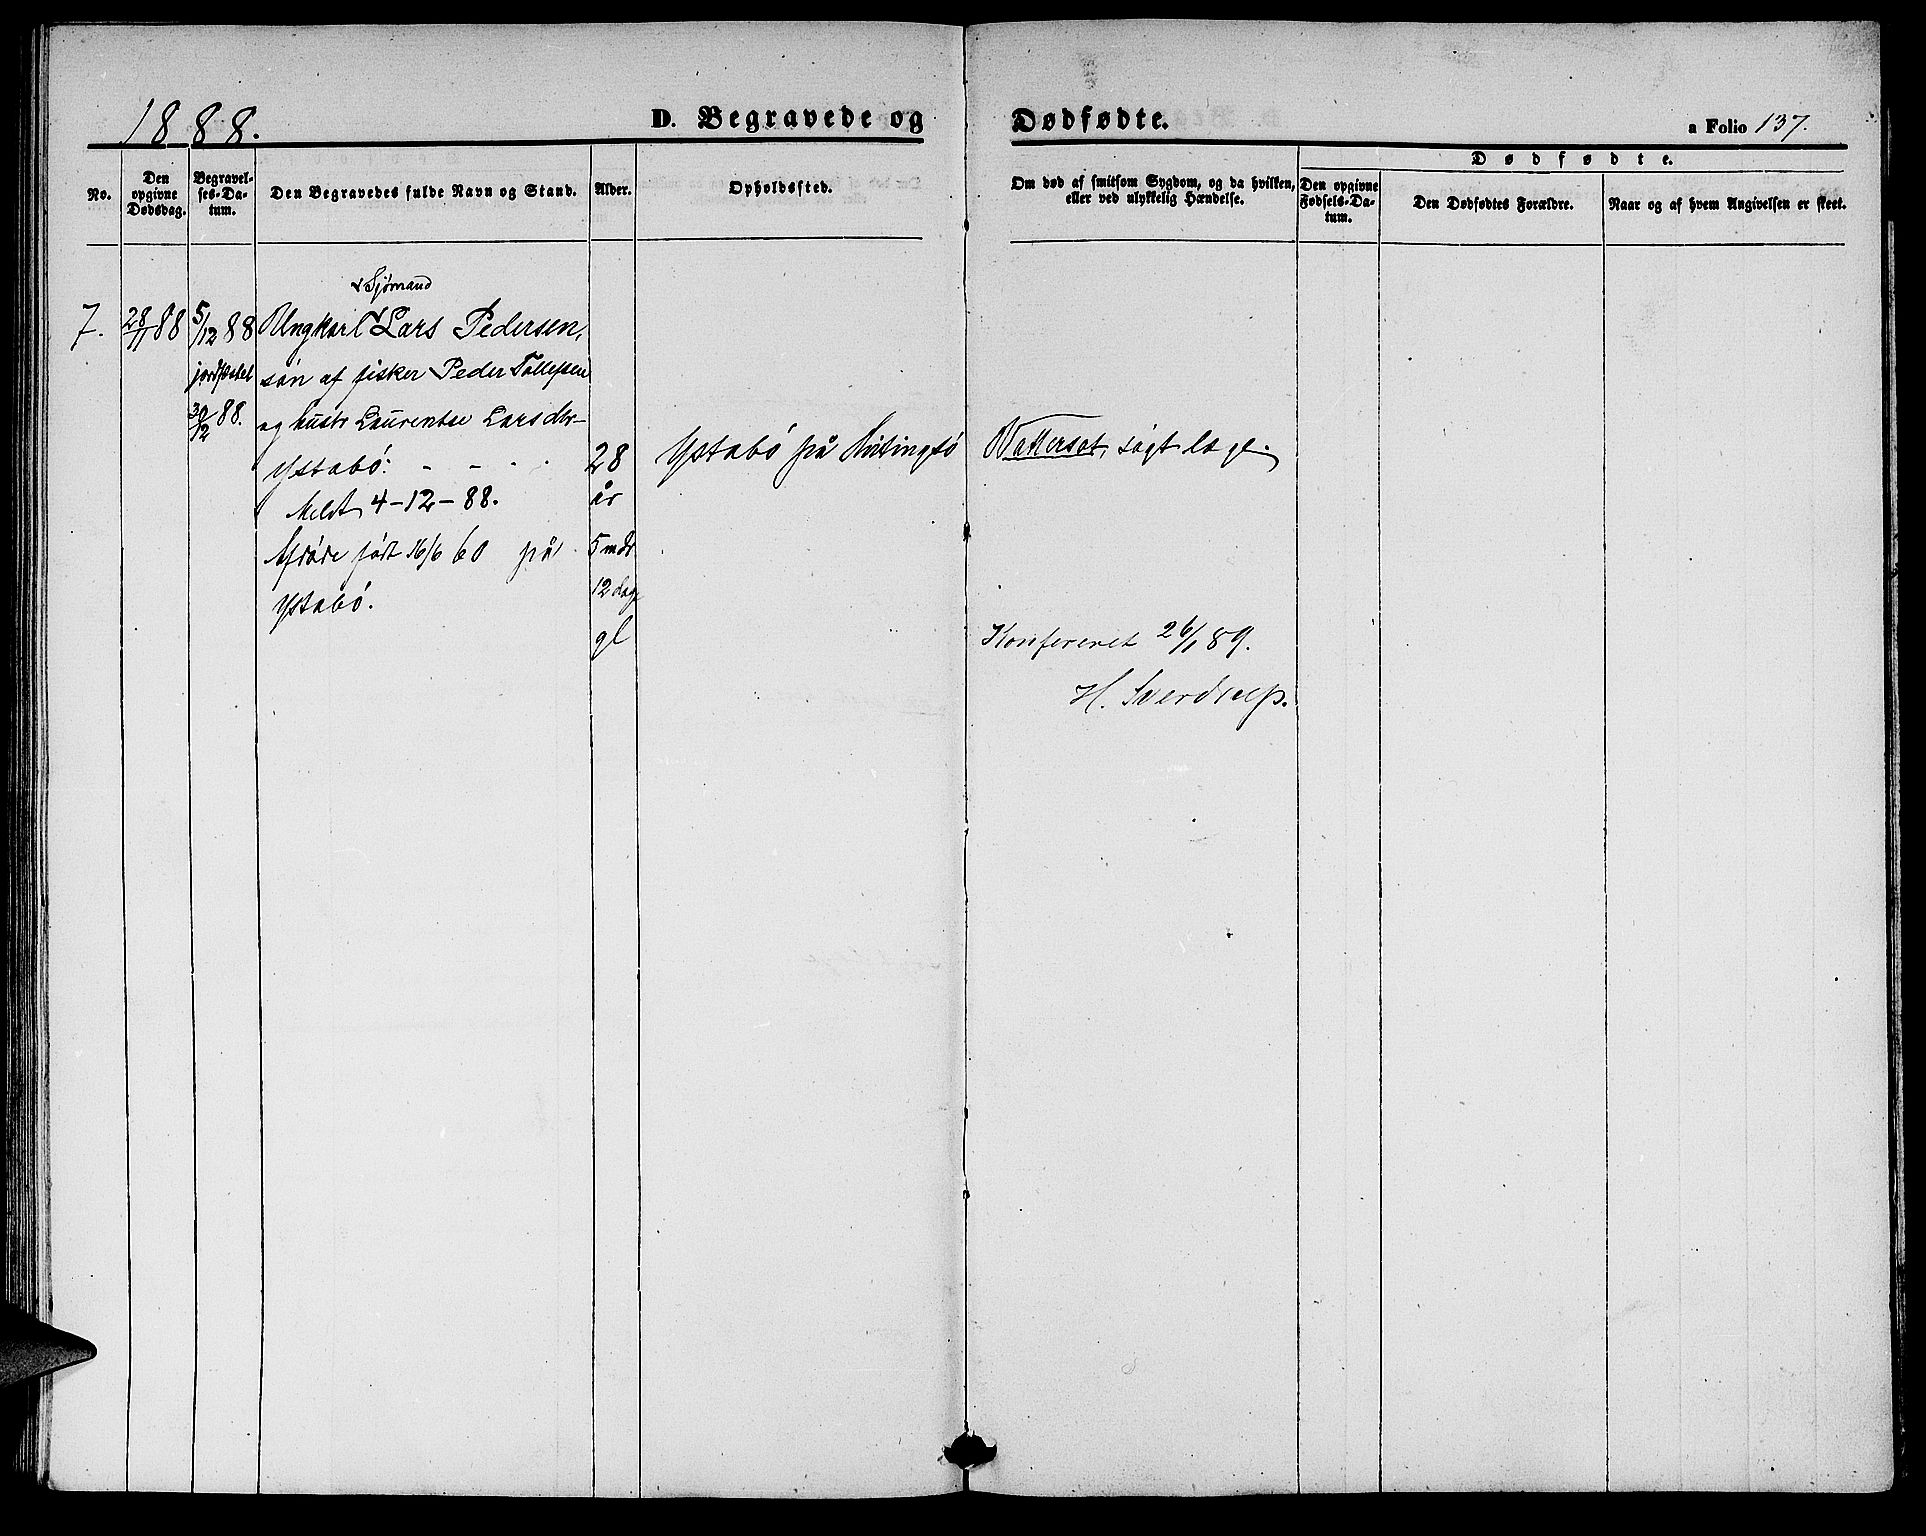 1888.
D. Begravede og Dødfødte.
a Folio 137.
No.
Den opgivne Dødsdag.
Begravel-
ses-Da-
tum.
Den Begravedes fulde Navn og Stand.
Alder.
Opholdssted.
Om død af smitsom Sygdom, og da hvilken,
eller ved ulykkelig Hændelse.
Dødfødte.
Den opgivne
Fødsels-Da-
tum.
Den Dødfødtes Forældre.
Naar og af hvem Angivelsen er skeet.
7.
28/11 88
5/12 88
jordfæstet
30/12 88.
Sjømand
Ungkarl Lars Pedersen,
søn af fisker Peder Tollefsen
og hustr Laurentse Larsdtr
Ystabø:
Meldt 4-12-88.
Afdøde født 16/6 60 på
Ystabø.
28
år
5 mdr
12 dage
gl
Ystabø på Hvitingsø
Vattersot, søgt læge.
Konfereret 26/1 89.
H. Sverdrup.